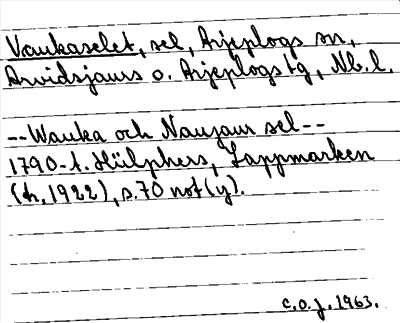 Vaukaselet, sel, Arjeplogs sn,
Arvidsjaurs o. Arjeplogs tg, Nb. l.
--Wauka och Naujaur sel--
1790-t. Hülphers, Lappmarken
(tr. 1922), s. 70 not (y).
c.o.j. 1963.